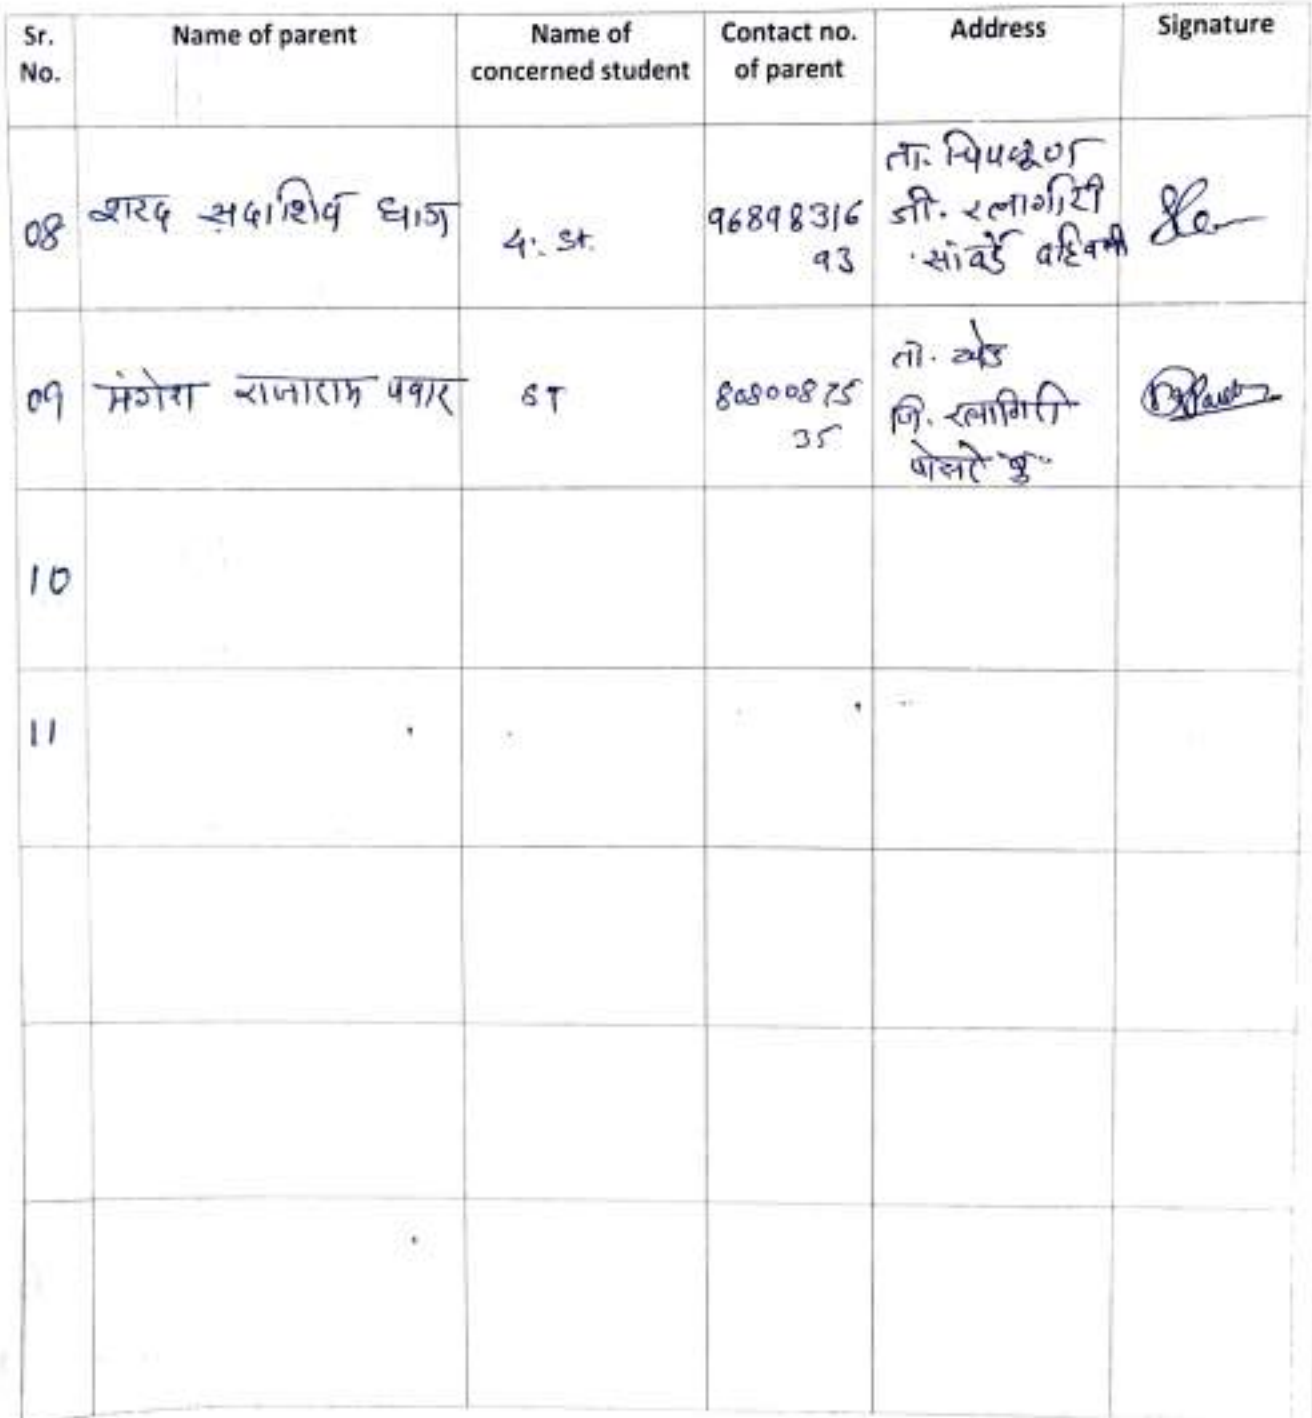 Sr. No. Name of parent Name of concerned student Contact no. of parent Address Signature
08 शरद सदाशिव घाग 4. St. 96898316 93 ता. चिपळूण
जी. रत्नागीरी
सावर्डे
09 मंगेश राजाराम पवार ST 80800875 35 ता. खेड
जि. रत्नागिरी
पोसरे बु
10
11